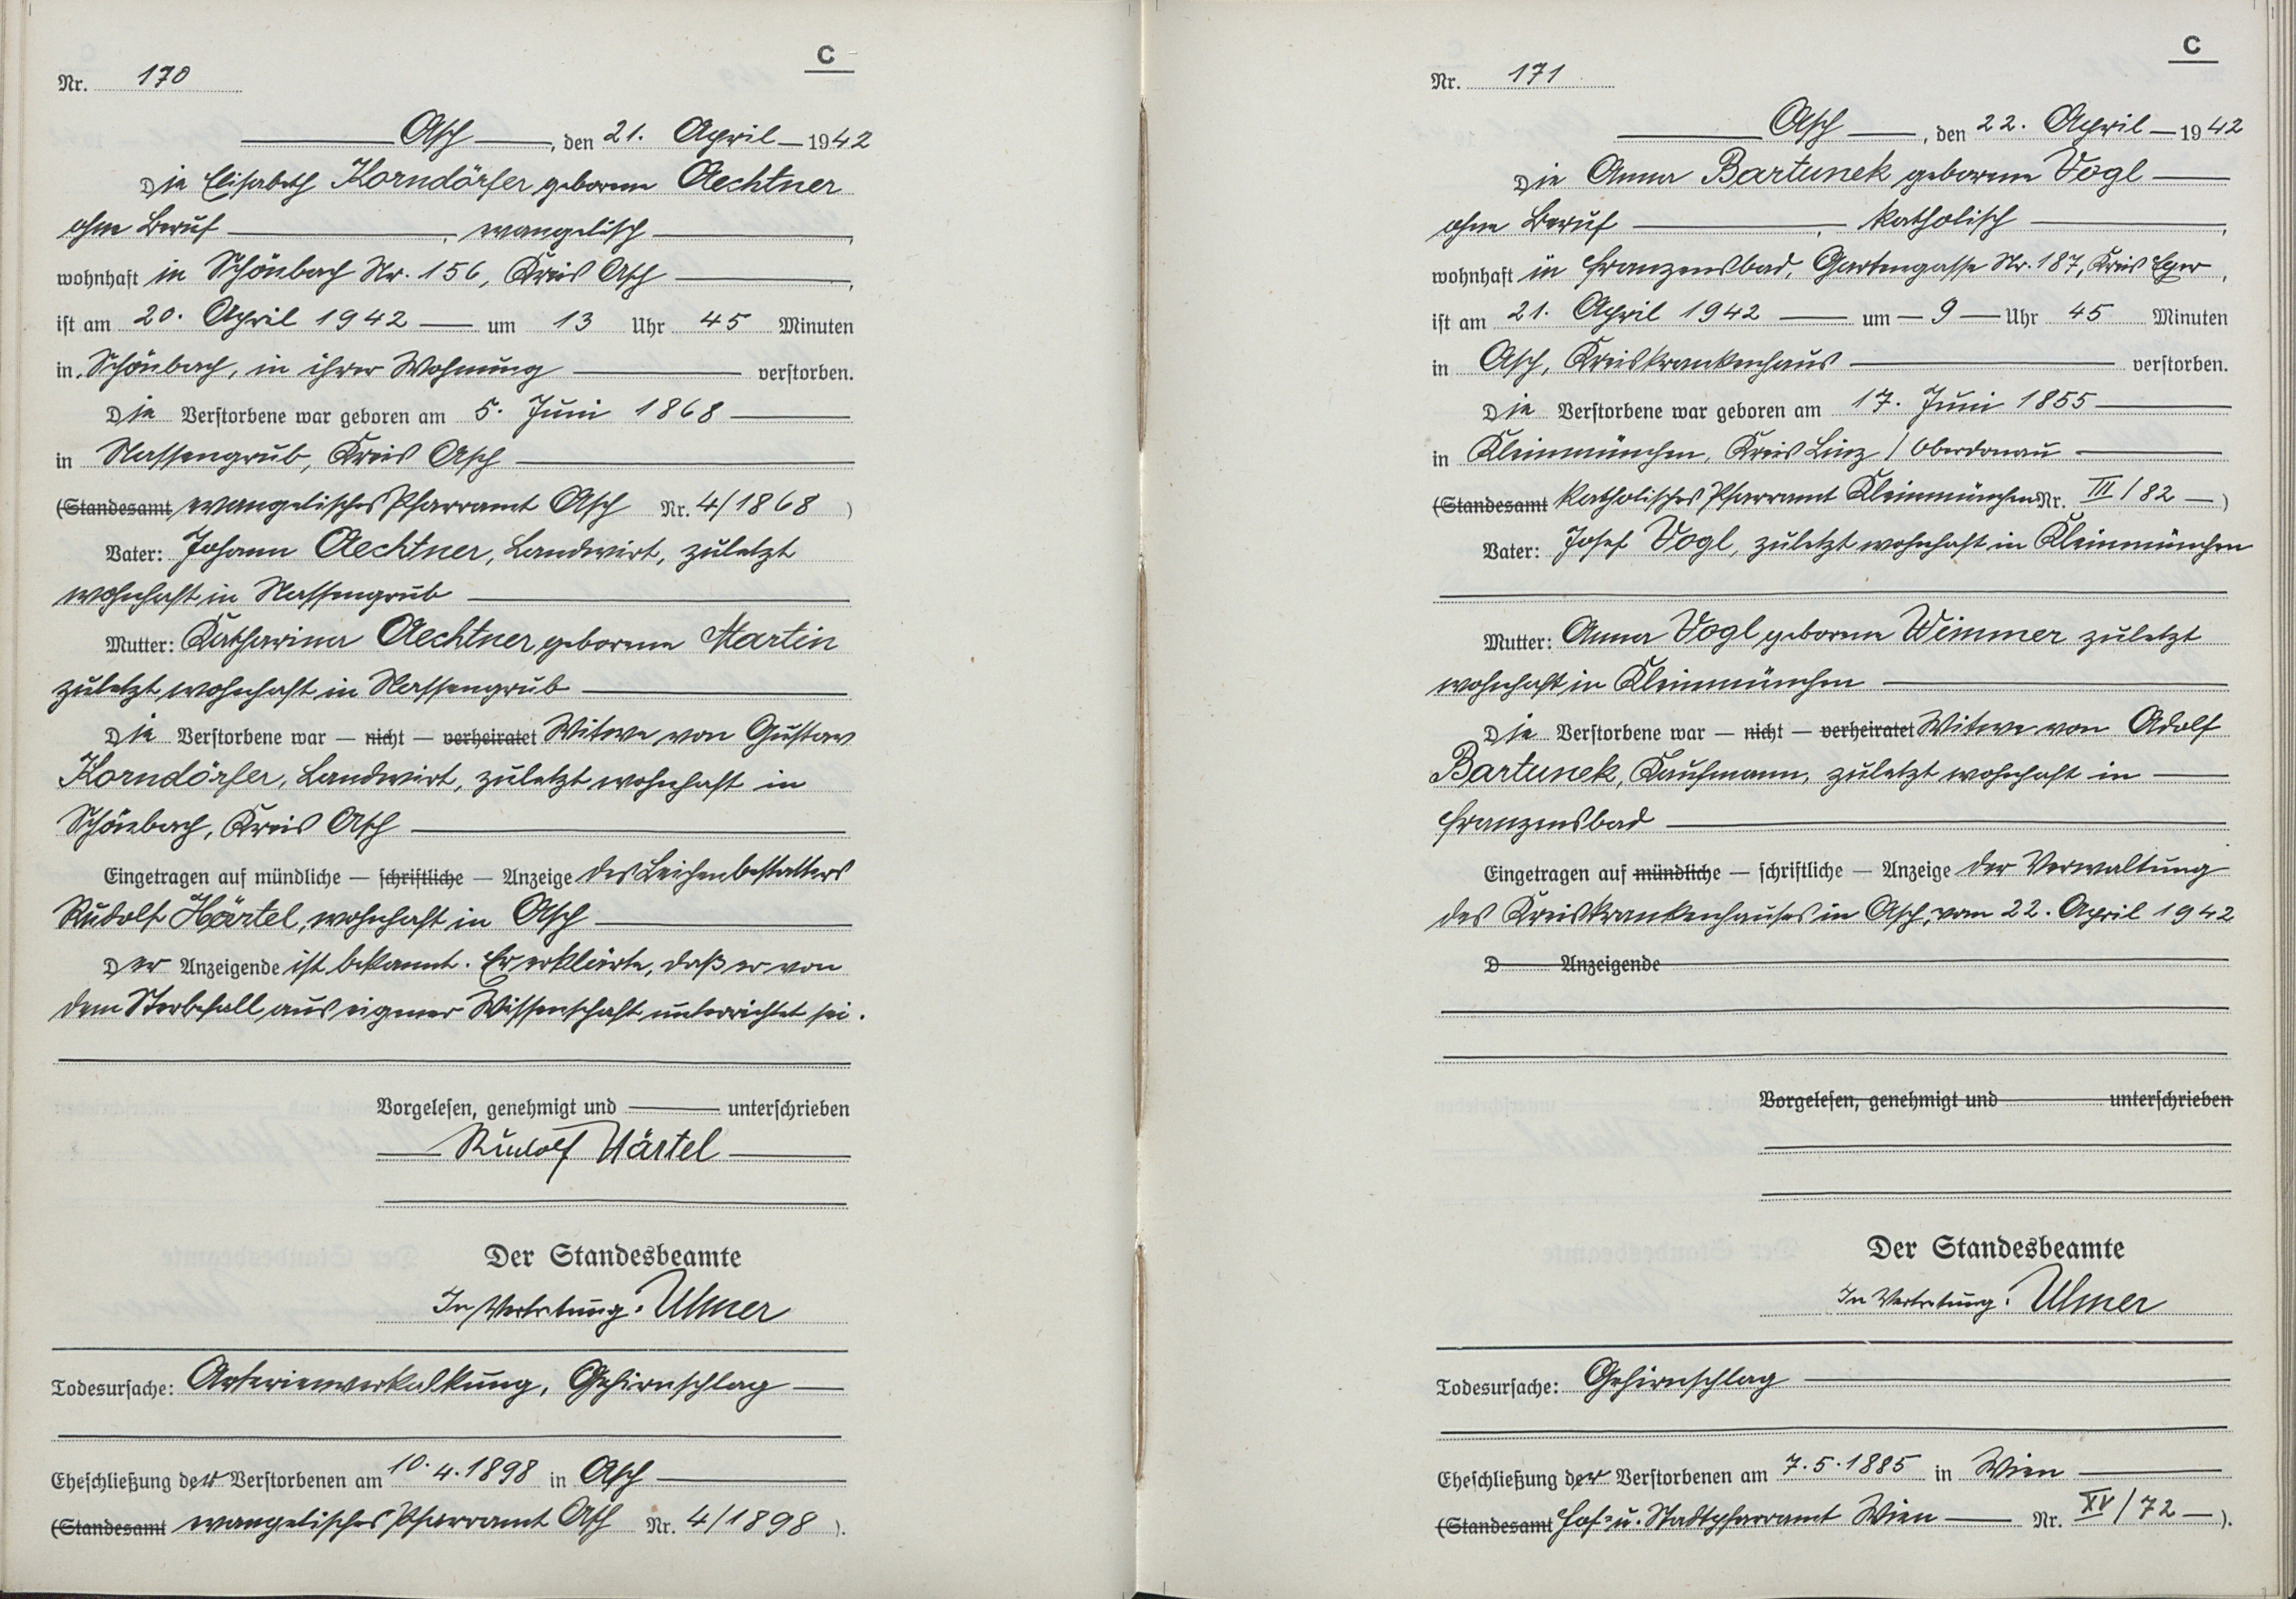 C
Nr. 170
Asch, den 21. April 1942
Die Elisabeth Korndörfer geborene Aechtner
ohne Beruf, evangelisch,
wohnhaft in Schönbach Nr. 156, Kreis Asch,
ist am 20. April 1942 um 13 Uhr 45 Minuten
in Schönbach, in ihrer Wohnung verstorben.
Die Verstorbene war geboren am 5. Juni 1868
in Nassengrub, Kreis Asch
(Standesamt evangelisches Pfarramt Asch Nr. 4/1868)
Vater: Johann Aechtner, Landwirt, zuletzt
wohnhaft in Nassengrub
Mutter: Katharina Aechtner, geborene Martin
zuletzt wohnhaft in Nassengrub
Die Verstorbene war — nicht — verheiratet Witwe von Gustav
Korndörfer, Landwirt, zuletzt wohnhaft in
Schönbach, Kreis Asch
Eingetragen auf mündliche — schriftliche — Anzeige des Leichenbestatters
Rudolf Härtel, wohnhaft in Asch
Der Anzeigende ist bekannt. Er erklärte, daß er von
dem Sterbefall aus eigener Wissenschaft unterrichtet sei.
Vorgelesen, genehmigt und unterschrieben
Rudolf Härtel
Der Standesbeamte
In Vertretung: Ulmer
Todesursache: Arterienverkalkung, Gehirnschlag
Eheschließung der Verstorbenen am 10.4.1898 in Asch
(Standesamt evangelisches Pfarramt Asch Nr. 4/1898).
C
Nr. 171
Asch, den 22. April 1942
Die Anna Bartunek geborene Vogl
ohne Beruf, katholisch,
wohnhaft in Franzensbad, Gartengasse Nr. 187, Kreis Eger,
ist am 21. April 1942 um 9 Uhr 45 Minuten
in Asch, Kreiskrankenhaus verstorben.
Die Verstorbene war geboren am 17. Juni 1855
in Kleinmünchen, Kreis Linz / Oberdonau
(Standesamt katholisches Pfarramt Kleinmünchen Nr. III/82)
Vater: Josef Vogl, zuletzt wohnhaft in Kleinmünchen
Mutter: Anna Vogl geborene Wimmer zuletzt
wohnhaft in Kleinmünchen
Die Verstorbene war — nicht — verheiratet Witwe von Adolf
Bartunek, Kaufmann, zuletzt wohnhaft in
Franzensbad
Eingetragen auf mündliche — schriftliche — Anzeige der Verwaltung
des Kreiskrankenhauses in Asch, vom 22. April 1942
D Anzeigende
Vorgelesen, genehmigt und unterschrieben
Der Standesbeamte
In Vertretung: Ulmer
Todesursache: Gehirnschlag
Eheschließung der Verstorbenen am 7.5.1885 in Wien
(Standesamt Hof- u. Stadtpfarramt Wien Nr. XV/72).